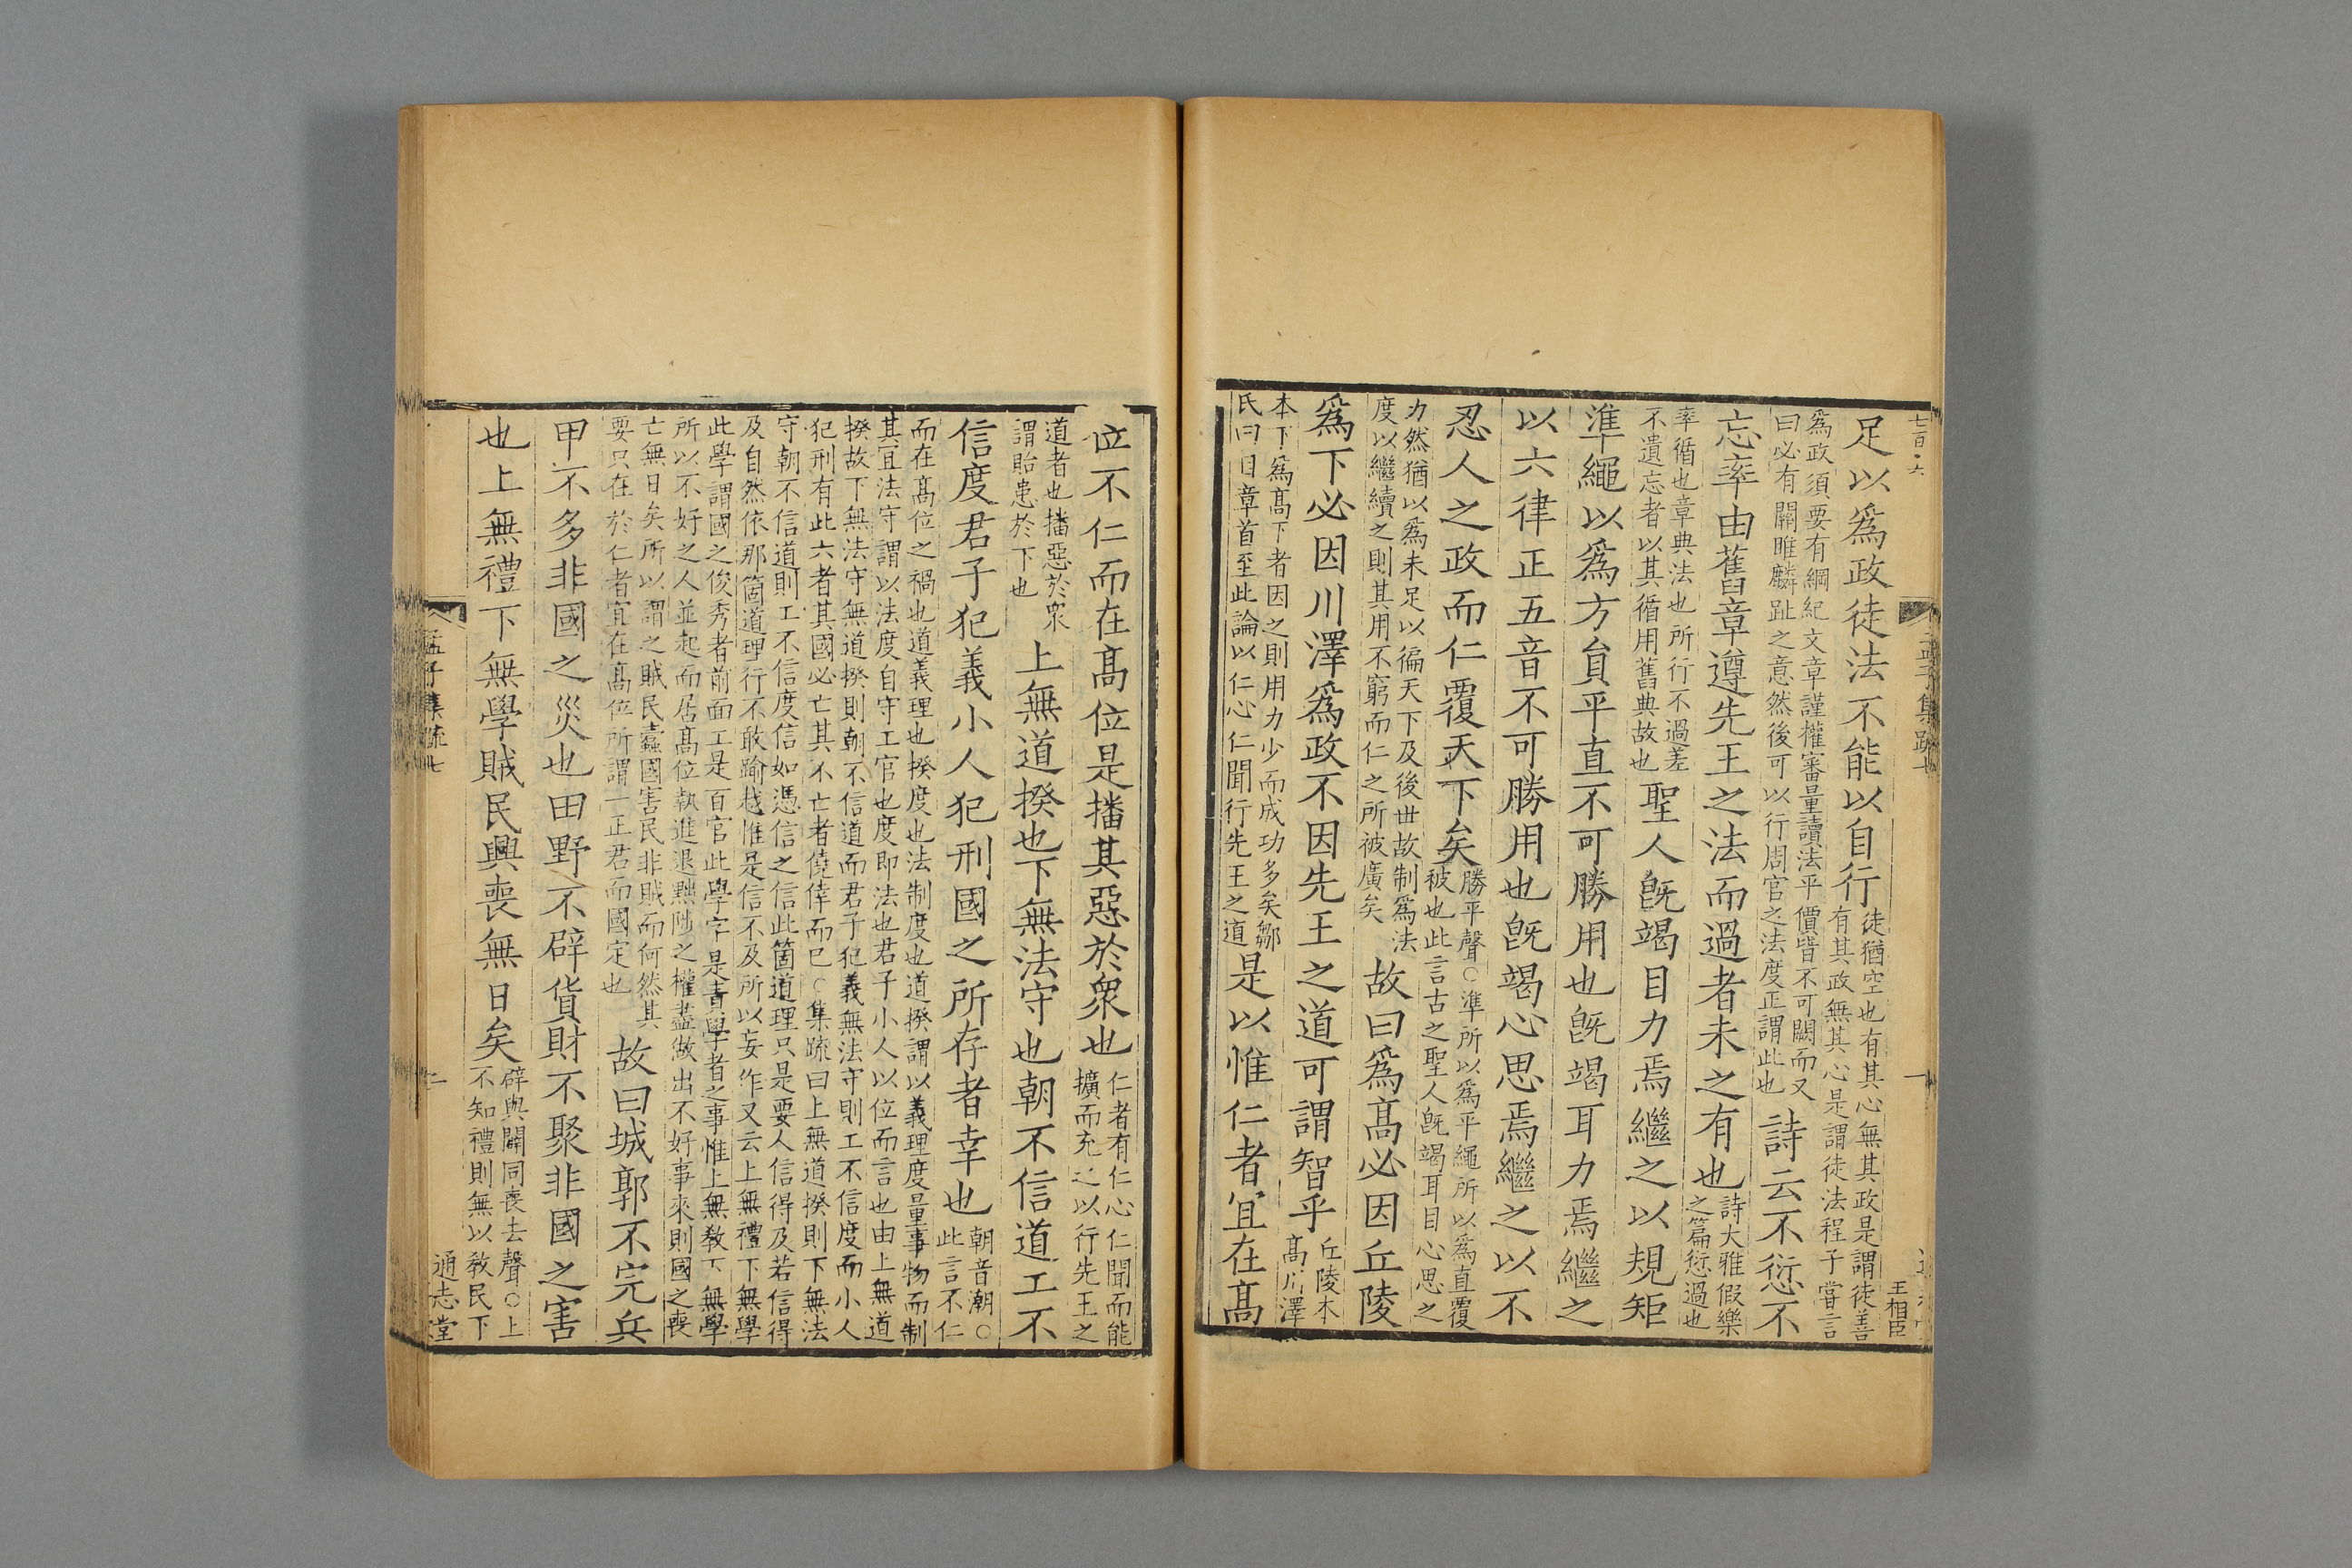 七百六
孟子集疏七
一
王相臣
足以爲政徒法不能以自行徒猶空也有其心無其政是謂徒善
有其政無其心是謂徒法程子嘗言
爲政須要有綱紀文章謹權審量讀法平價皆不可闕而又
曰必有關睢麟趾之意然後可以行周官之法度正謂此也詩云不愆不
忘率由舊章遵先王之法而過者未之有也詩大雅假樂
之篇愆過也
率循也章典法也所行不過差
不遺忘者以其循用舊典故也聖人旣竭目力焉繼之以規矩
準繩以爲方員平直不可勝用也旣竭耳力焉繼之
以六律正五音不可勝用也旣竭心思焉繼之以不
忍人之政而仁覆天下矣勝平聲○準所以爲平繩所以爲直覆
被也此言古之聖人旣竭耳目心思之
力然猶以爲未足以徧天下及後世故制爲法
度以繼續之則其用不窮而仁之所被廣矣故曰爲髙必因丘陵
爲下必因川澤爲政不因先王之道可謂智乎丘陵本
髙川澤
本下爲髙下者因之則用力少而成功多矣鄒
氏曰自章首至此論以仁心仁聞行先王之道是以惟仁者宜在髙
位不仁而在髙位是播其惡於衆也仁者有仁心仁聞而能
擴而充之以行先王之
道者也播惡於衆
謂貽患於下也上無道揆也下無法守也朝不信道工不
信度君子犯義小人犯刑國之所存者幸也朝音潮○
此言不仁
而在髙位之禍也道義理也揆度也法制度也道揆謂以義理度量事物而制
其宜法守謂以法度自守工官也度即法也君子小人以位而言也由上無道
揆故下無法守無道揆則朝不信道而君子犯義無法守則工不信度而小人
犯刑有此六者其國必亡其不亡者僥倖而已○集疏曰上無道揆則下無法
守朝不信道則工不信度信如憑信之信此箇道理只是要人信得及若信得
及自然依那箇道理行不敢踰越惟是信不及所以妄作又云上無禮下無學
此學謂國之俊秀者前面工是百官此學字是責學者之事惟上無教下無學
所以不好之人並起而居髙位執進退黜陟之權盡做出不好事來則國之喪
亡無日矣所以謂之賊民蠹國害民非賊而何然其
要只在於仁者宜在髙位所謂一正君而國定也故曰城郭不完兵
甲不多非國之災也田野不辟貨財不聚非國之害
也上無禮下無學賊民興喪無日矣辟與闢同喪去聲○上
不知禮則無以教民下
孟子集疏七
二
通志堂